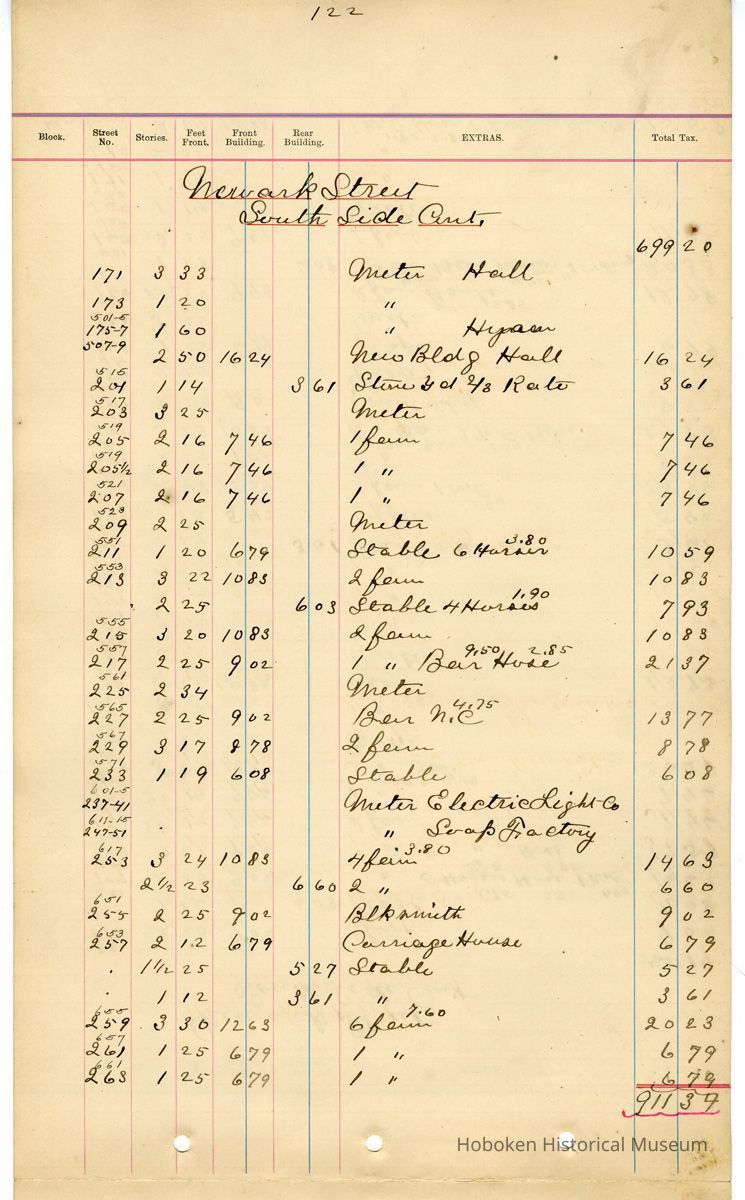 122
Block. Street No. Stories. Feet Front. Front Building. Rear Building. EXTRAS. Total Tax.
Newark Street
South Side Cont.
699 20
171 3 33 Meter Hall
173 1 20 "
501-5
175-7 1 60 " Hyam
507-9
2 50 16 24 New Bldg Hall 16 24
515
201 1 14 3 61 Store 2/3 Rate 3 61
517
203 3 25 Meter
519
205 2 16 7 46 1 fam 7 46
519
205 1/2 2 16 7 46 1 " 7 46
521
207 2 16 7 46 1 " 7 46
523
209 2 25 Meter
551
211 1 20 6 79 Stable 6 Horses 3.80 10 59
553
213 3 22 10 83 2 fam 10 83
2 25 6 03 Stable 4 Horses 1.90 7 93
555
215 3 20 10 83 2 fam 10 83
557
217 2 25 9 02 1 " Bar 9.50 Hose 2.85 21 37
561
225 2 34 Meter
565
227 2 25 9 02 Bar N.C 4.75 13 77
567
229 3 17 8 78 2 fam 8 78
571
233 1 19 6 08 Stable 6 08
601-5
237-41 Meter Electric Light Co
611-15
247-51 " Soap Factory
617
253 3 24 10 83 4 fam 3.80 14 63
2 1/2 23 6 60 2 " 6 60
651
255 2 25 9 02 Blksmith 9 02
653
257 2 12 6 79 Carriage House 6 79
1 1/2 25 5 27 Stable 5 27
1 12 3 61 " 3 61
655
259 3 30 12 63 6 fam 7.60 20 23
657
261 1 25 6 79 1 " 6 79
661
263 1 25 6 79 1 " 6 79
911 39
Hoboken Historical Museum